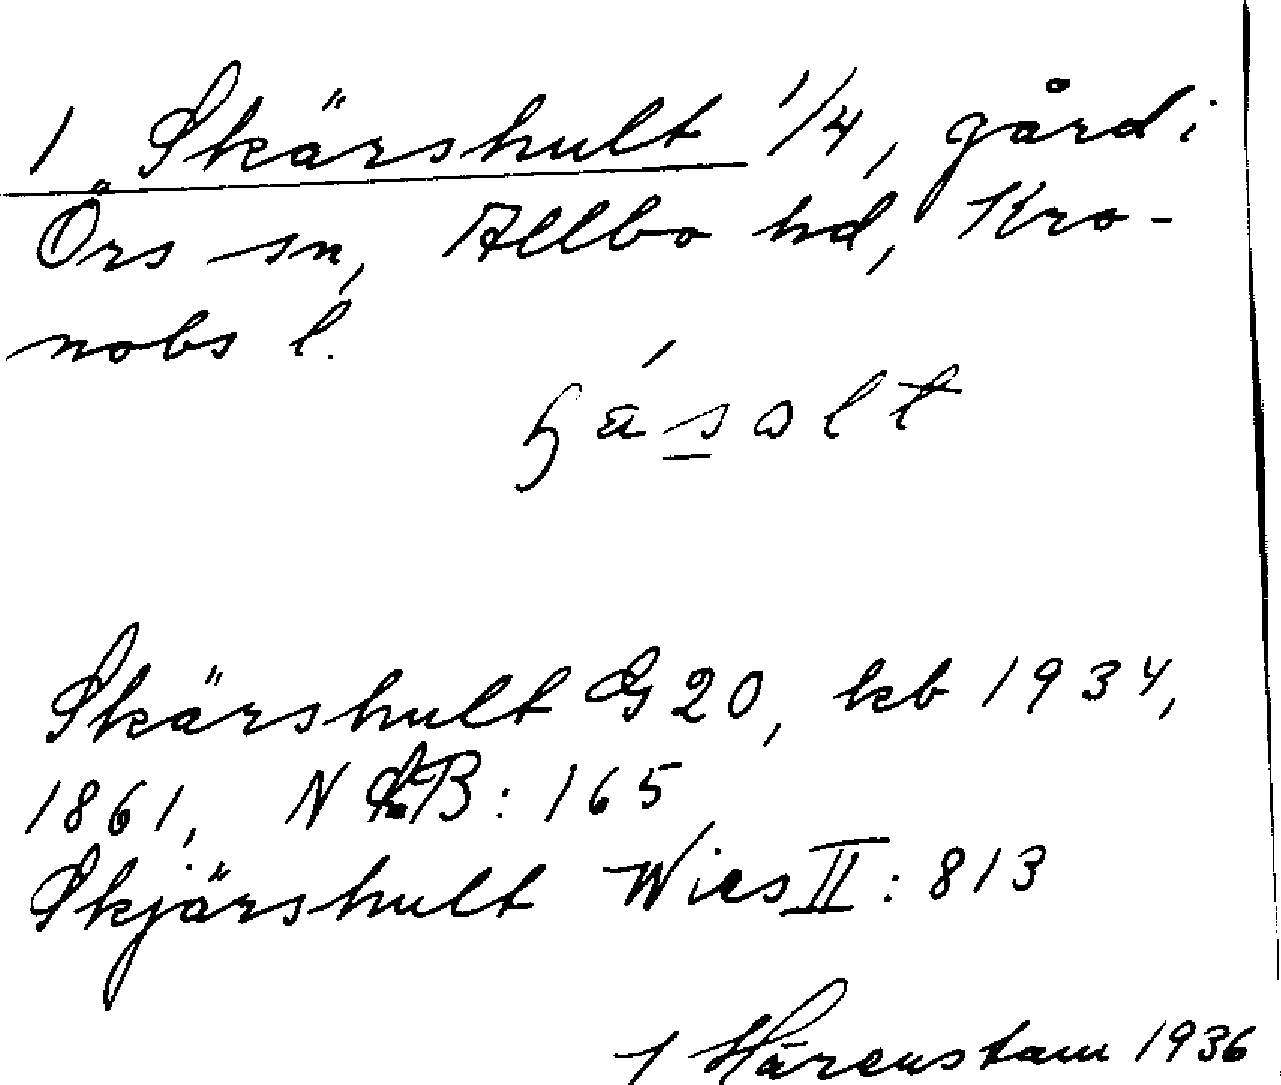 1 Skärshult 1/4, gård i
Örs sn, Allbo hd, Kro-
nobs l.
ɧásalt
Skärshult G 20, kb 1934,
1861, N : 165
Skjärshult Wies II : 813
Härenstam 1936